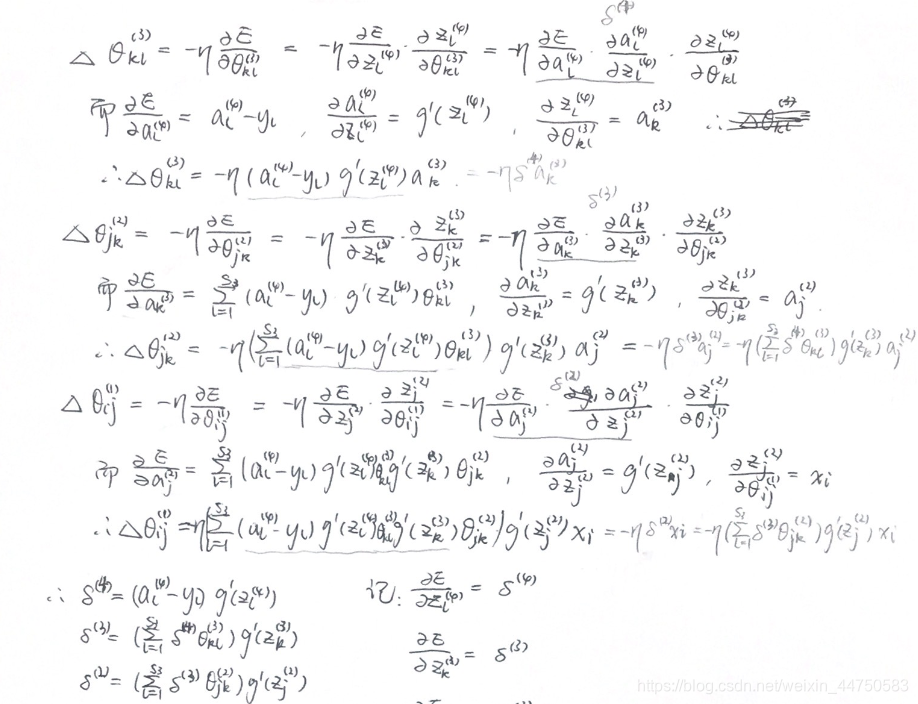 δ^{(4)}
Δθ_{kl}^{(3)} = -η ∂E/∂θ_{kl}^{(3)} = -η ∂E/∂z_l^{(4)} · ∂z_l^{(4)}/∂θ_{kl}^{(3)} = -η ∂E/∂a_l^{(4)} · ∂a_l^{(4)}/∂z_l^{(4)} · ∂z_l^{(4)}/∂θ_{kl}^{(3)}
而 ∂E/∂a_l^{(4)} = a_l^{(4)} - y_l , ∂a_l^{(4)}/∂z_l^{(4)} = g'(z_l^{(4)}) , ∂z_l^{(4)}/∂θ_{kl}^{(3)} = a_k^{(3)} ∴
∴ Δθ_{kl}^{(3)} = -η (a_l^{(4)} - y_l) g'(z_l^{(4)}) a_k^{(3)} = -η δ^{(4)} a_k^{(3)}
δ^{(3)}
Δθ_{jk}^{(2)} = -η ∂E/∂θ_{jk}^{(2)} = -η ∂E/∂z_k^{(3)} · ∂z_k^{(3)}/∂θ_{jk}^{(2)} = -η ∂E/∂a_k^{(3)} · ∂a_k^{(3)}/∂z_k^{(3)} · ∂z_k^{(3)}/∂θ_{jk}^{(2)}
而 ∂E/∂a_k^{(3)} = Σ_{l=1}^{S_3} (a_l^{(4)} - y_l) · g'(z_l^{(4)}) θ_{kl}^{(3)} , ∂a_k^{(3)}/∂z_k^{(3)} = g'(z_k^{(3)}) , ∂z_k^{(3)}/∂θ_{jk}^{(2)} = a_j^{(2)} .
∴ Δθ_{jk}^{(2)} = -η (Σ_{l=1}^{S_3} (a_l^{(4)} - y_l) g'(z_l^{(4)}) θ_{kl}^{(3)}) g'(z_k^{(3)}) a_j^{(2)} = -η δ^{(3)} a_j^{(2)} = -η (Σ_{l=1}^{S_3} δ^{(4)} θ_{kl}^{(3)}) g'(z_k^{(3)}) a_j^{(2)}
δ^{(2)}
Δθ_{ij}^{(1)} = -η ∂E/∂θ_{ij}^{(1)} = -η ∂E/∂z_j^{(2)} · ∂z_j^{(2)}/∂θ_{ij}^{(1)} = -η ∂E/∂a_j^{(2)} · ∂a_j^{(2)}/∂z_j^{(2)} · ∂z_j^{(2)}/∂θ_{ij}^{(1)}
而 ∂E/∂a_j^{(2)} = Σ_{l=1}^{S_3} (a_l^{(4)} - y_l) g'(z_l^{(4)}) θ_{kl}^{(3)} g'(z_k^{(3)}) θ_{jk}^{(2)} , ∂a_j^{(2)}/∂z_j^{(2)} = g'(z_j^{(2)}) , ∂z_j^{(2)}/∂θ_{ij}^{(1)} = x_i
∴ Δθ_{ij}^{(1)} = -η (Σ_{l=1}^{S_3} (a_l^{(4)} - y_l) g'(z_l^{(4)}) θ_{kl}^{(3)} g'(z_k^{(3)}) θ_{jk}^{(2)}) g'(z_j^{(2)}) x_i = -η δ^{(2)} x_i = -η (Σ_{l=1}^{S_3} δ^{(3)} θ_{jk}^{(2)}) g'(z_j^{(2)}) x_i
∴ δ^{(4)} = (a_l^{(4)} - y_l) g'(z_l^{(4)}) 记: ∂E/∂z_l^{(4)} = δ^{(4)}
δ^{(3)} = (Σ_{l=1}^{S_3} δ^{(4)} θ_{kl}^{(3)}) g'(z_k^{(3)}) ∂E/∂z_k^{(3)} = δ^{(3)}
δ^{(2)} = (Σ_{l=1}^{S_3} δ^{(3)} θ_{jk}^{(2)}) g'(z_j^{(2)})
https://blog.csdn.net/weixin_44750583